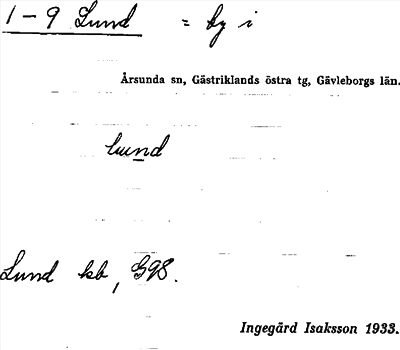 1-9 Lund = by i
Årsunda sn, Gästriklands östra tg, Gävleborgs län.
lund
Lund kb, G98.
Ingegärd Isaksson 1933.